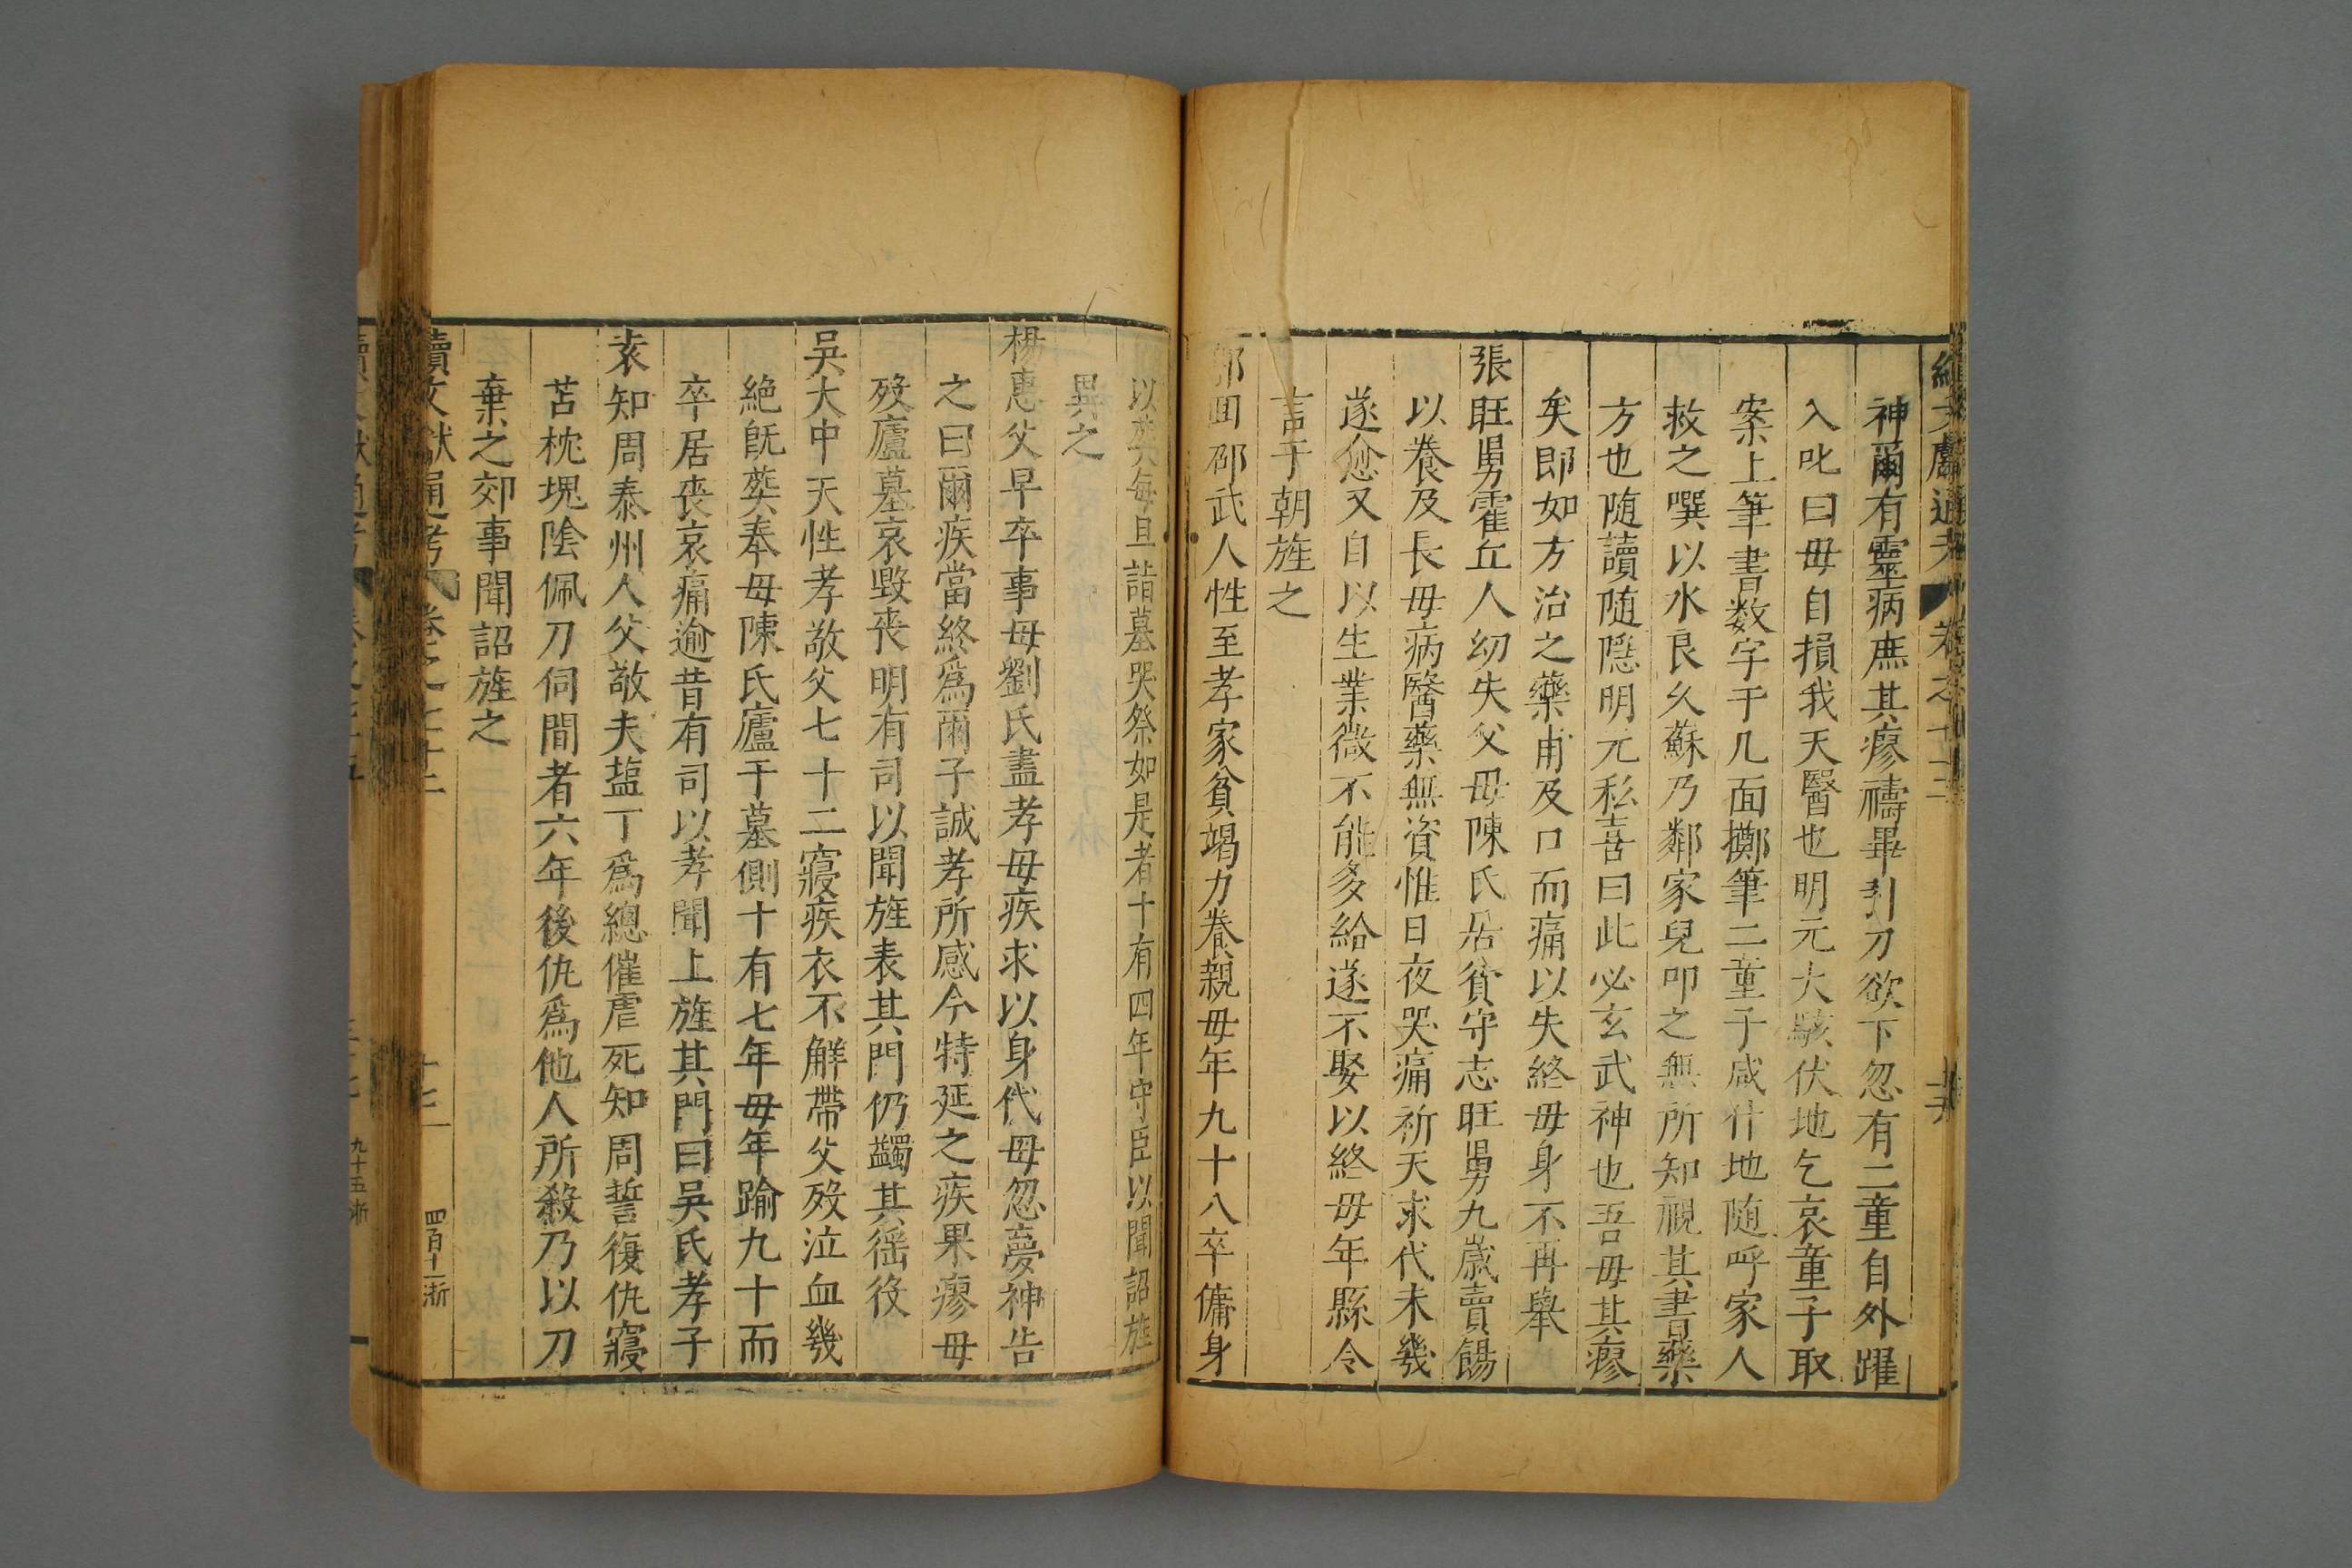 續文獻通考 卷之七十二
神爾有靈病庶其瘳禱畢引刀欲下忽有二童自外躍
入叱曰毋自損我天醫也明元大駭伏地乞哀童子取
案上筆書数字于几面擲筆二童子咸仆地随呼家人
救之噀以水良久蘇乃鄰家兒叩之無所知視其書藥
方也随讀随隱明元私喜曰此必玄武神也吾母其瘳
矣即如方治之藥甫及口而痛以失終毋身不再舉
張旺舅霍丘人幼失父毋陳氏居貧守志旺舅九歲賣餳
以養及長毋病醫藥無資惟日夜哭痛祈天求代未幾
遂愈又自以生業微不能多給遂不娶以終毋年縣令
言于朝旌之
邵武人性至孝家貧竭力養親毋年九十八卒傭身
以葬每旦詣墓哭祭如是者十有四年守臣以聞詔旌
異之
楊惠父早卒事毋劉氏盡孝毋疾求以身代毋忽夢神告
之曰爾疾當終爲爾子誠孝所感今特延之疾果瘳毋
歿廬墓哀毀喪明有司以聞旌表其門仍蠲其徭役
吳大中天性孝敬父七十二寢疾衣不解帶父歿泣血幾
絶旣葬奉毋陳氏廬于墓側十有七年毋年踰九十而
卒居丧哀痛逾昔有司以孝聞上旌其門曰吳氏孝子
袁知周泰州人父敬夫塩丁爲總催虐死知周誓復仇寢
苫枕塊陰佩刀伺間者六年後仇爲他人所殺乃以刀
棄之郊事聞詔旌之
續文獻通考 卷之七十二 十七 四百十一浙
九十五浙